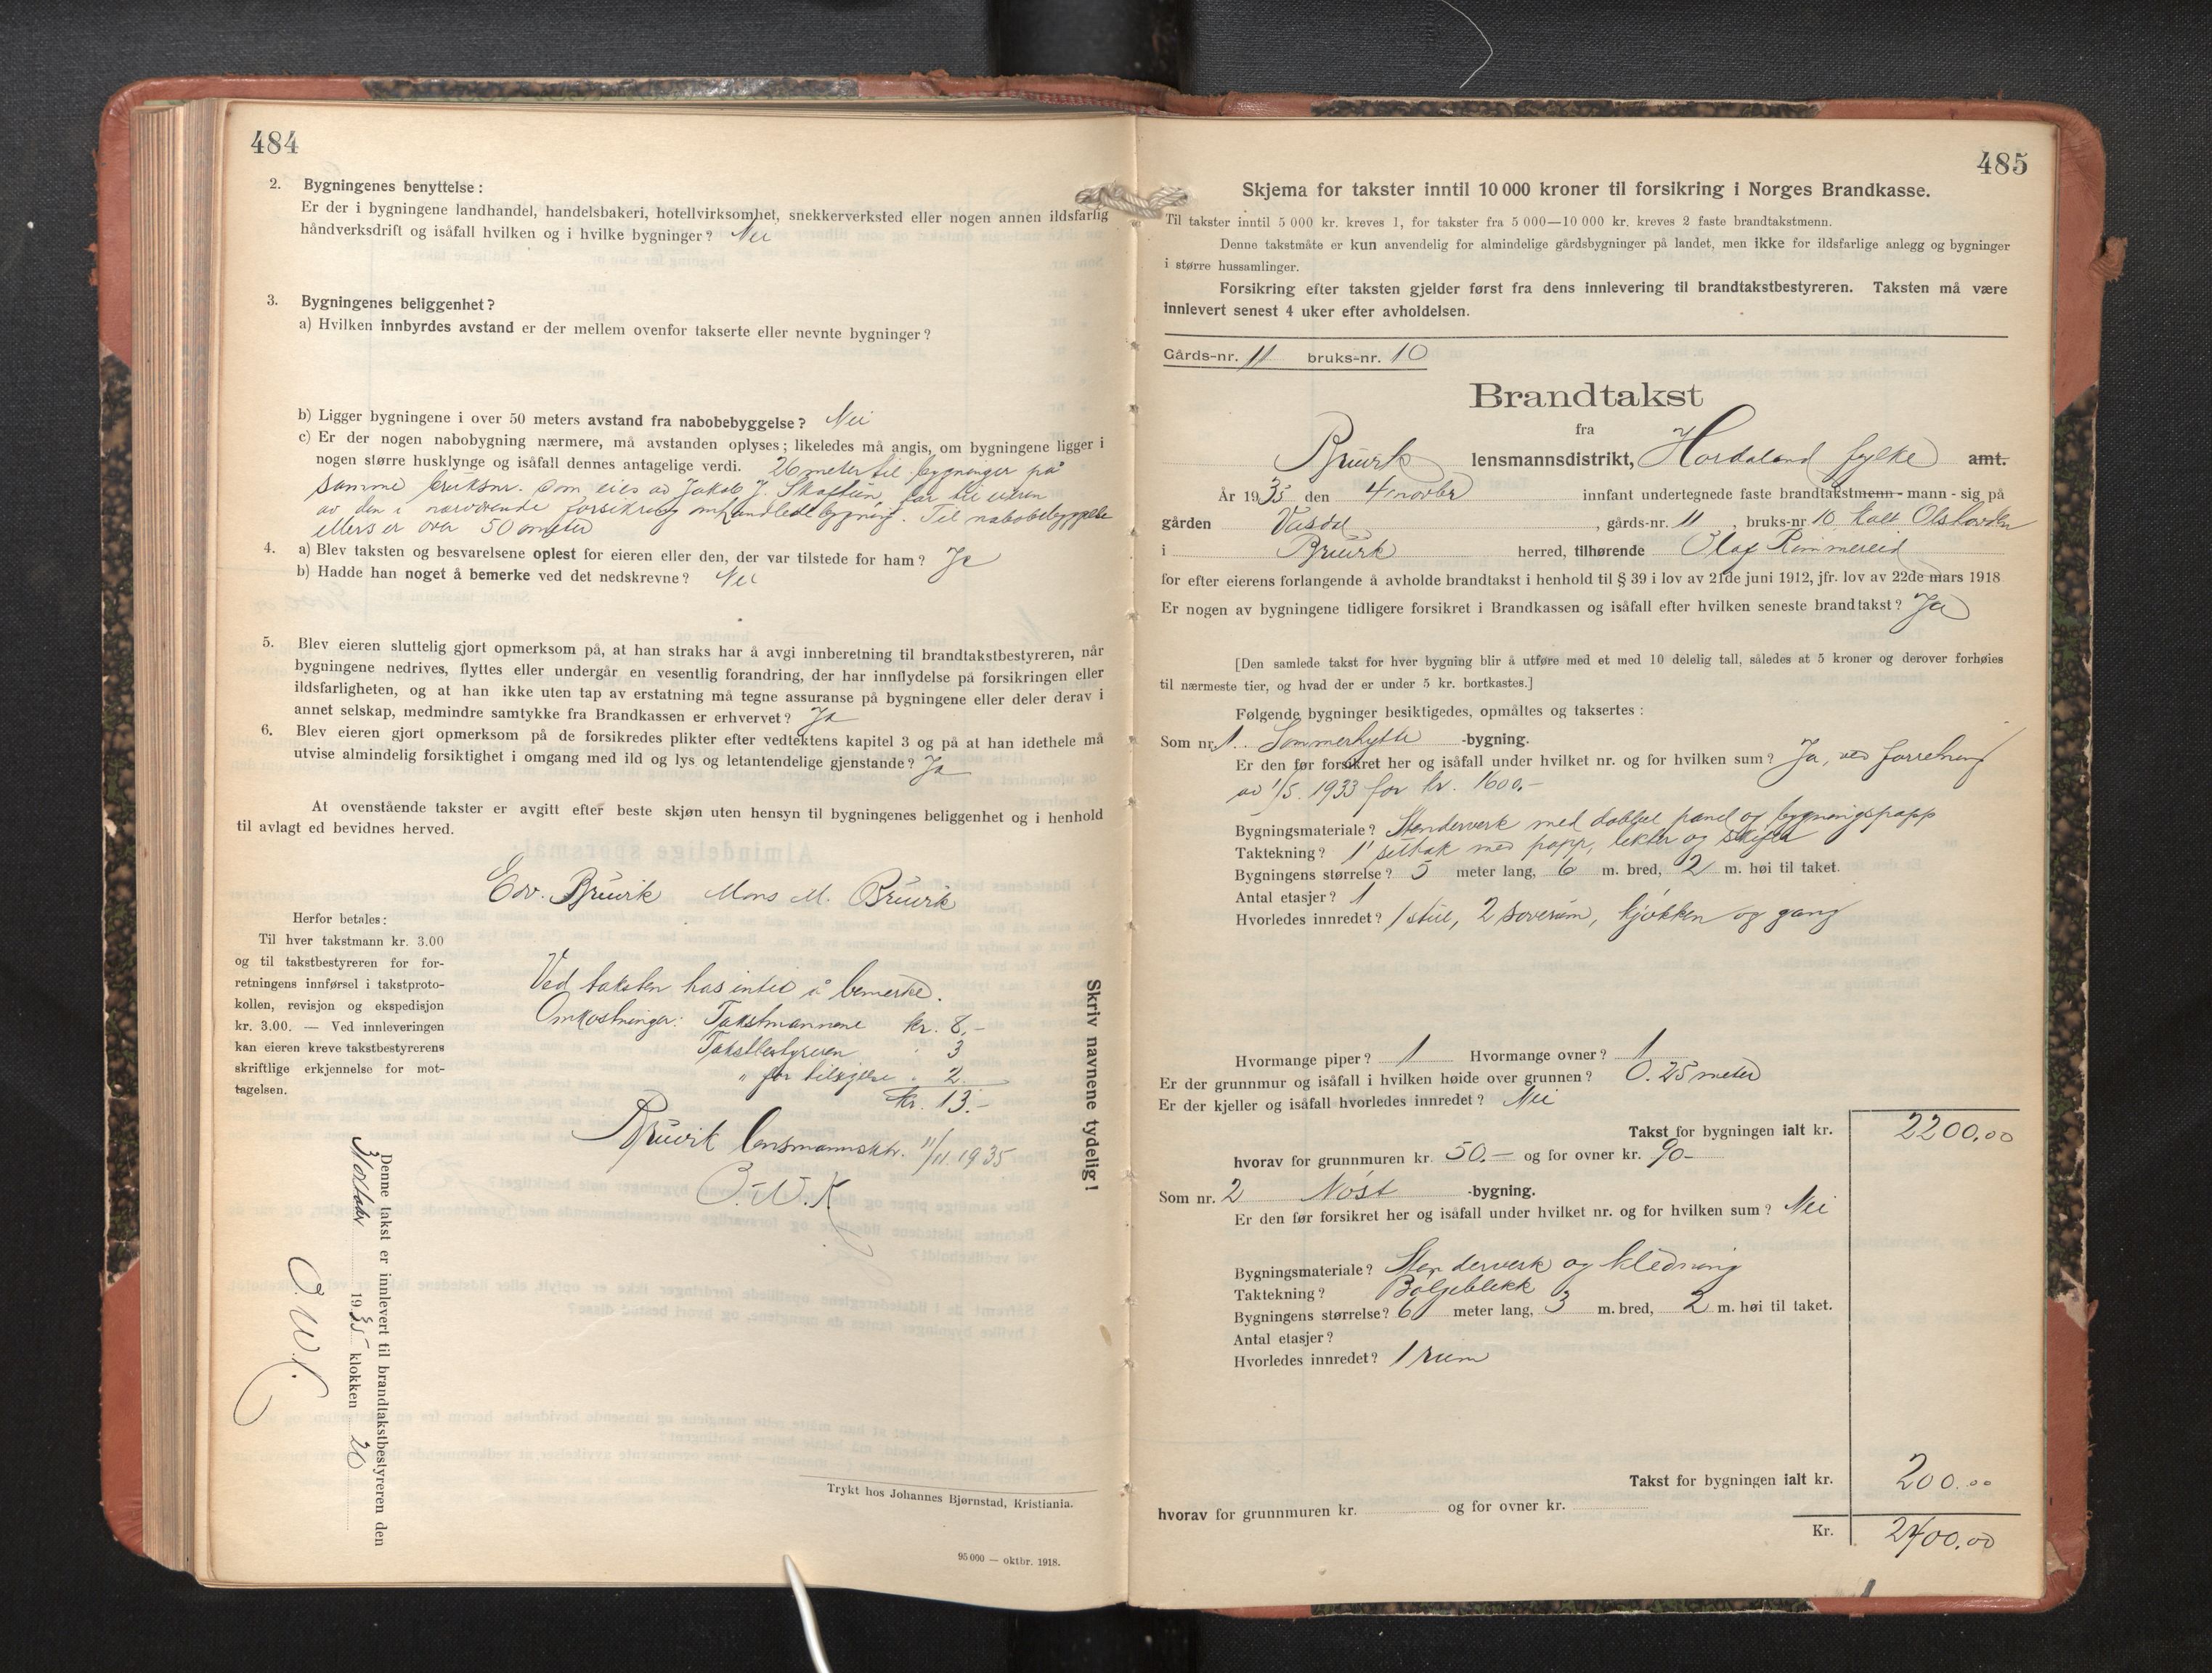 484
2. Bygningenes benyttelse:
Er der i bygningene landhandel, handelsbakeri, hotellvirksomhet, snekkerverksted eller nogen annen ildsfarlig
håndverksdrift og isåfall hvilken og i hvilke bygninger? Nei
3. Bygningenes beliggenhet?
a) Hvilken innbyrdes avstand er der mellem ovenfor takserte eller nevnte bygninger?
b) Ligger bygningene i over 50 meters avstand fra nabobebyggelse? Nei
c) Er der nogen nabobygning nærmere, må avstanden oplyses; likeledes må angis, om bygningene ligger i
nogen større husklynge og isåfall dennes antagelige verdi. 26 meter til bygninger på
samme bruksnr. som eies av Jakob J. Skaftun, far til eieren
av den i nærværende forsikring omhandlede bygning. Til nabobebyggelse
ellers er over 50 meter
4. a) Blev taksten og besvarelsene oplest for eieren eller den, der var tilstede for ham? Ja
b) Hadde han noget å bemerke ved det nedskrevne? Nei
5. Blev eieren sluttelig gjort opmerksom på, at han straks har å avgi innberetning til brandtakstbestyreren, når
bygningene nedrives, flyttes eller undergår en vesentlig forandring, der har innflydelse på forsikringen eller
ildsfarligheten, og at han ikke uten tap av erstatning må tegne assuranse på bygningene eller deler derav i
annet selskap, medmindre samtykke fra Brandkassen er erhvervet? Ja
6. Blev eieren gjort opmerksom på de forsikredes plikter efter vedtektens kapitel 3 og på at han idethele må
utvise almindelig forsiktighet i omgang med ild og lys og letantendelige gjenstande? Ja
At ovenstående takster er avgitt efter beste skjøn uten hensyn til bygningenes beliggenhet og i henhold
til avlagt ed bevidnes herved.
Edv. Bruvik Mons M. Bruvik
Herfor betales:
Til hver takstmann kr. 3.00
og til takstbestyreren for for-
retningens innførsel i takstproto-
kollen, revisjon og ekspedisjon
kr. 3.00. — Ved innleveringen
kan eieren kreve takstbestyrerens
skriftlige erkjennelse for mot-
tagelsen.
Ved taksten has intet å bemerke.
Omkostninger: Takstmannene kr. 8.-
Takstbestyreren " 3
" for tilsigelse " 2
kr. 13.-
Bruvik lensmannsktr. 11/11 1935
Skriv navnene tydelig!
Denne takst er innlevert til brandtakstbestyreren den
1935 klokken 20
Trykt hos Johannes Bjørnstad, Kristiania.
95 000 — oktbr. 1918.
485
Skjema for takster inntil 10 000 kroner til forsikring i Norges Brandkasse.
Til takster inntil 5 000 kr. kreves 1, for takster fra 5 000—10 000 kr. kreves 2 faste brandtakstmenn.
Denne takstmåte er kun anvendelig for almindelige gårdsbygninger på landet, men ikke for ildsfarlige anlegg og bygninger
i større hussamlinger.
Forsikring efter taksten gjelder først fra dens innlevering til brandtakstbestyreren. Taksten må være
innlevert senest 4 uker efter avholdelsen.
Gårds-nr. 11 bruks-nr. 10
Brandtakst
fra
Bruvik lensmannsdistrikt, Hordaland fylke amt.
År 1935 den 4 novbr innfant undertegnede faste brandtakstmenn - mann - sig på
gården Vasdal, gårds-nr. 11, bruks-nr 10 kalt
i Bruvik herred, tilhørende Olaf Rimmereid
for efter eierens forlangende å avholde brandtakst i henhold til § 39 i lov av 21de juni 1912, jfr. lov av 22de mars 1918
Er nogen av bygningene tidligere forsikret i Brandkassen og isåfall efter hvilken seneste brandtakst? Ja
[Den samlede takst for hver bygning blir å utføre med et med 10 delelig tall, således at 5 kroner og derover forhøies
til nærmeste tier, og hvad der er under 5 kr. bortkastes.]
Følgende bygninger besiktigedes, opmåltes og taksertes:
Som nr. 1 Sommerhytte -bygning.
Er den før forsikret her og isåfall under hvilket nr. og for hvilken sum? Ja, ved forretning
av 1/5. 1933 for kr. 1600.-
Bygningsmateriale? Stenderverk med dobbel panel og bygningspapp
Taktekning? 1" sutak med papp, lekter og skifer
Bygningens størrelse? 5 meter lang, 6 m. bred, 2 m. høi til taket.
Antal etasjer? 1
Hvorledes innredet? 1 stue, 2 soverum, kjøkken og gang
Hvormange piper? 1 Hvormange ovner? 1
Er der grunnmur og isåfall i hvilken høide over grunnen? 0.25 meter
Er der kjeller og isåfall hvorledes innredet? Nei
Takst for bygningen ialt kr. 2200.00
hvorav for grunnmuren kr. 50.— og for ovner kr. 90-
Som nr. 2 Nøst -bygning.
Er den før forsikret her og isåfall under hvilket nr. og for hvilken sum? Nei
Bygningsmateriale? Stenderverk og kledning
Taktekning? Bølgeblekk
Bygningens størrelse? 6 meter lang, 3 m. bred, 2 m. høi til taket.
Antal etasjer?
Hvorledes innredet? 1 rum
Takst for bygningen ialt kr. 200.00
hvorav for grunnmuren kr. og for ovner kr.
Kr. 2400.00